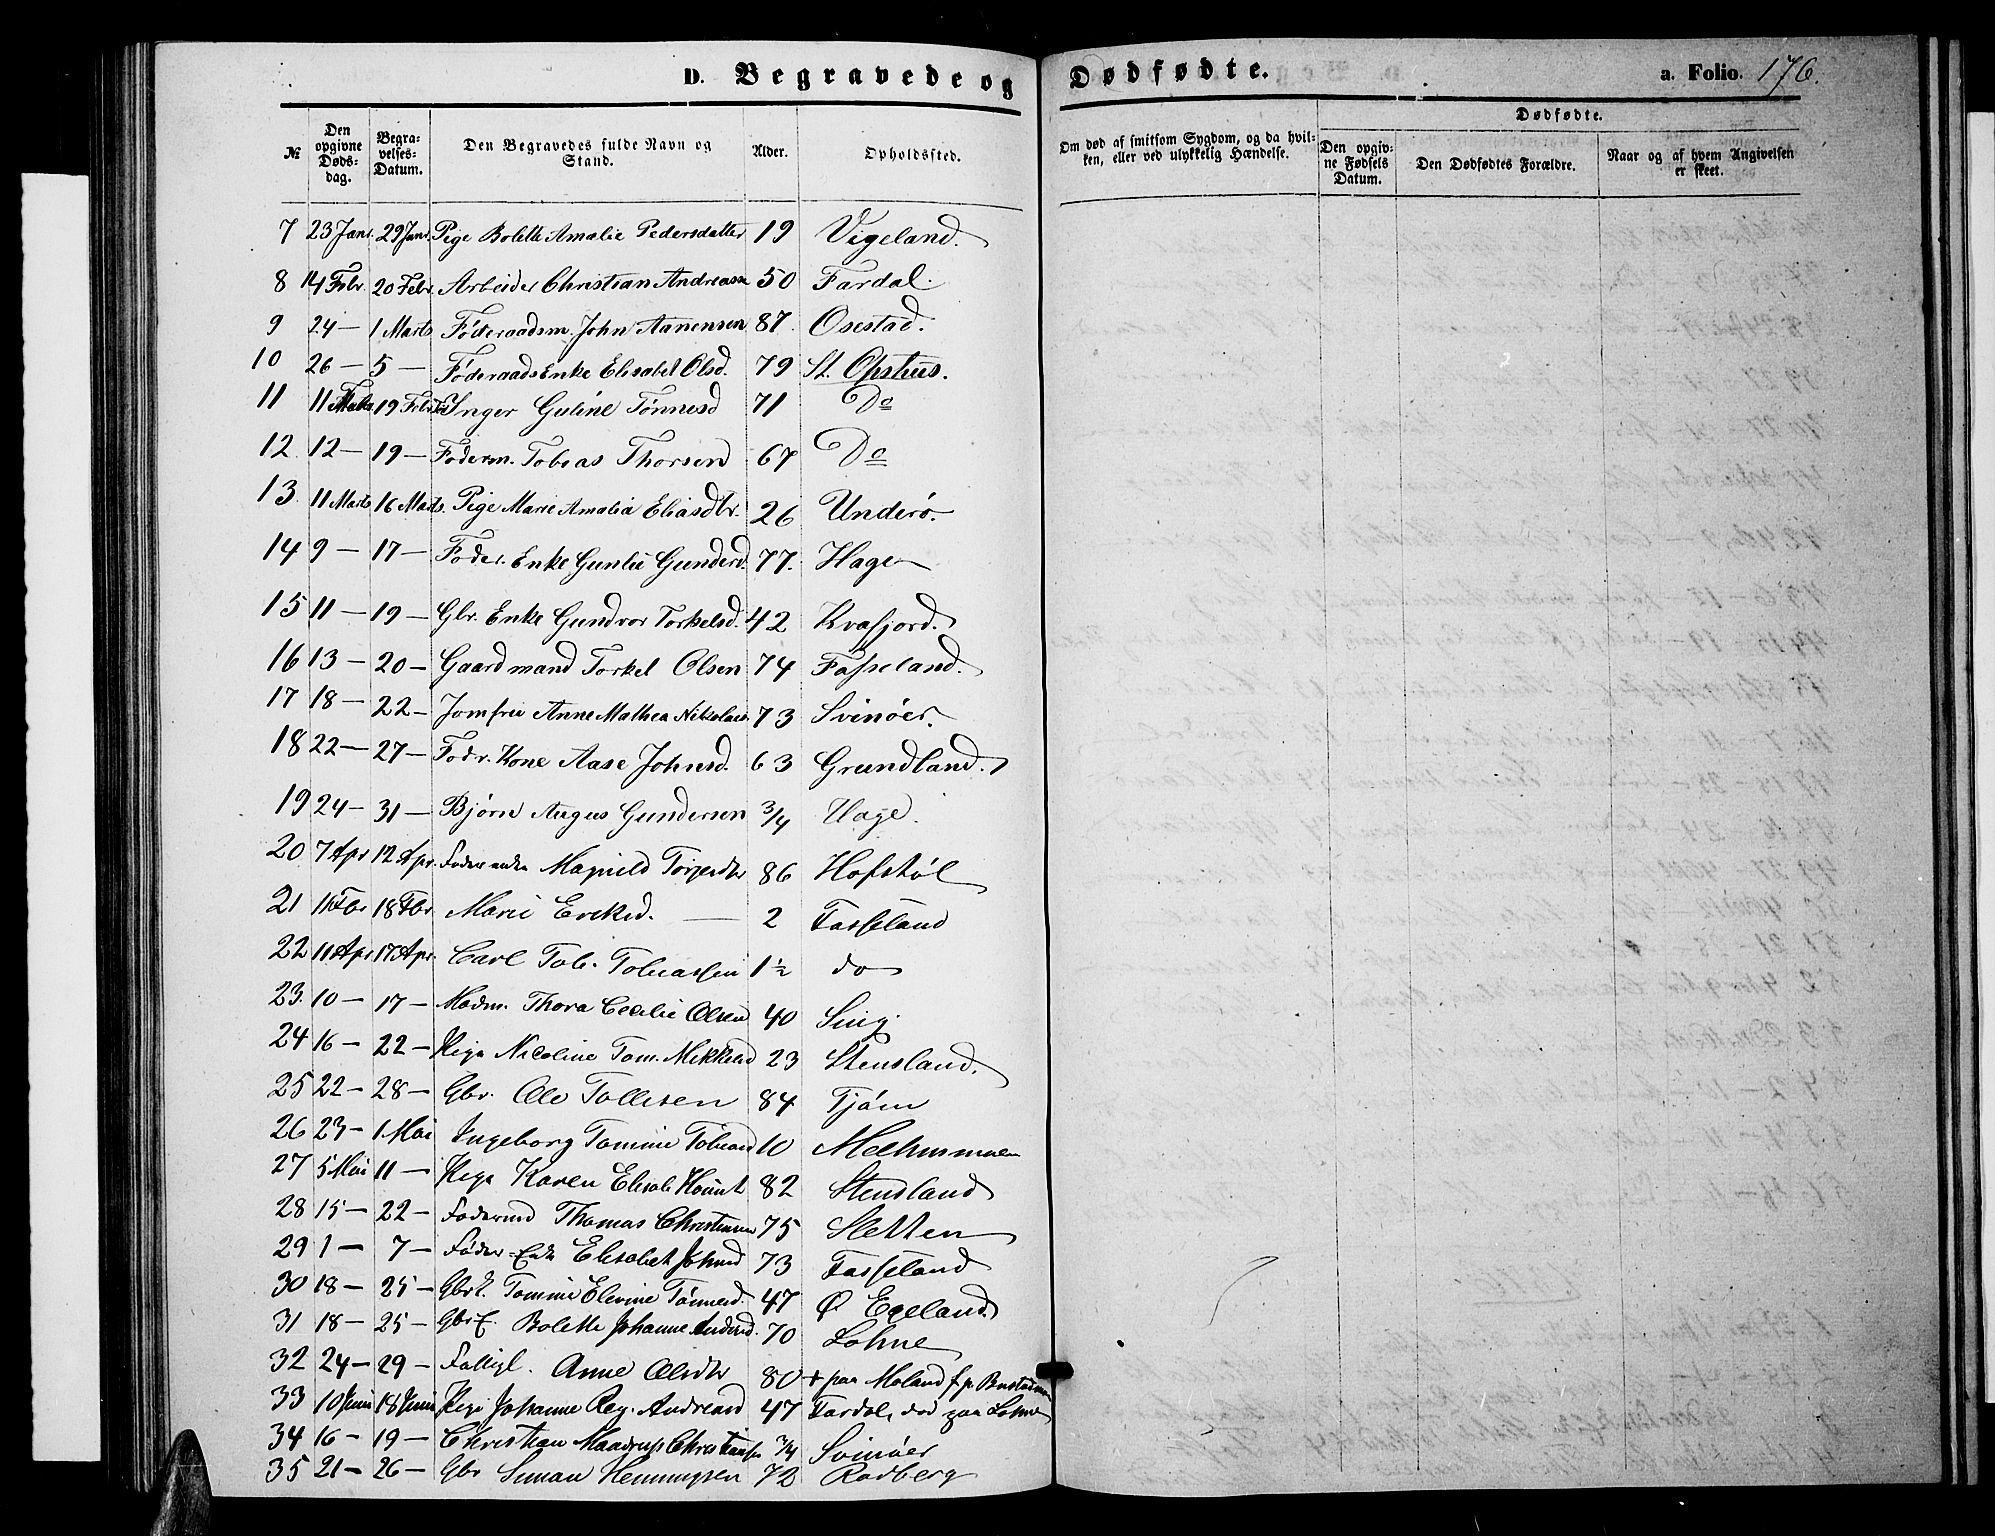 D. Begravede og Dødfødte.
a. Folio. 176.
№ Den opgivne Døds-dag. Begra-velses-Datum. Den Begravedes fulde Navn og Stand. Alder. Opholdssted. Om død af smitsom Sygdom, og da hvil-ken, eller ved ulykkelig Hændelse. Dødfødte. Den opgiv-ne Fødsels Datum. Den Dødfødtes Forældre. Naar og af hvem Angivelsen er skeet.
7 23 Janr. 29 Janr. Pige Bolette Amalie Pedersdatter 19 Vigeland.
8 14 Febr. 20 Febr. Arbeider Christian Andreassen 50 Fardal.
9 24 — 1 Marts Föderaadsm. John Aanensen 87. Osestad.
10 26 — 5 — Föderaads Enke Elisabet Olsd. 79 St. Opshus.
11 11 19 Febr. Inger Guline Tönnesd 71 Do
12. 12 — 19 — Föderm. Tobias Thorsen 67 Do
13. 11 Marts 16 Marts. Pige Marie Amalia Eliasdtr. 26 Underö.
14 9 — 17 — Föder. Enke Gunlie Gunderd. 77. Hage
15 11 — 19 — Gbr. Enke Gundvor Torkelsd. 42 Kvafjord.
16 13 — 20 — Gaardmand Torkel Olsen 74 Fasseland.
17 18 — 22 — Jomfru Anne Mathea Nikolais 73 Svinöer.
18 22 — 27 — Födr. Kone Aase Johnsd. 63 Grundland.
19 24 — 31 — Bjørn Augus Gundersen 3/4 Hage.
20 7 Apr 12 Apr. Föder enke Magnild Torjersdtr 86 Hofstöl
21 11 Fbr 18 Fbr Marie Eriksd. — 2 Fasseland
22 11 Apr 17 Apr. Carl Tob. Tobiassen 1½ do
23. 10 — 17 — Madm. Thora Cecilie Olsen 40 Sing.
24 16 — 22 — Pige Nicoline Tom. Mikkelsd 23 Stensland.
25 22 — 28 — Gbr. Ole Tollesen 84 Tjöm
26 23 — 1 Mai Ingeborg Tomine Tobiasd 10 Melhusmoen
27 5 Mai 11 — Pige Karen Elisab. 82 Stensland
28 15 — 22 — Födermd Thomas Christensen 75 Sletten
29 1 — 7 — Föder-Enk Elisabet Johnsd 73 Fasseland
30 18 — 25 — Gbr k. Tomine Elevine Tönnesd. 47 Ø. Egeland.
31 18 — 25 — Gbr E. Bolette Johanne Andersd. 70 Lohne
32 24 — 29 — Fattigl. Anne Olsdtr 80 + paa Moland f. p.
33 10 Juni 18 Juni Pige Johanne Reg. Andreasd 47 Fardal, död paa Lohne
34 16 — 19 — Christian 3/4 Svinöer
35 21 — 26 — Gbr Simon Hemmingsen 72 Rödberg